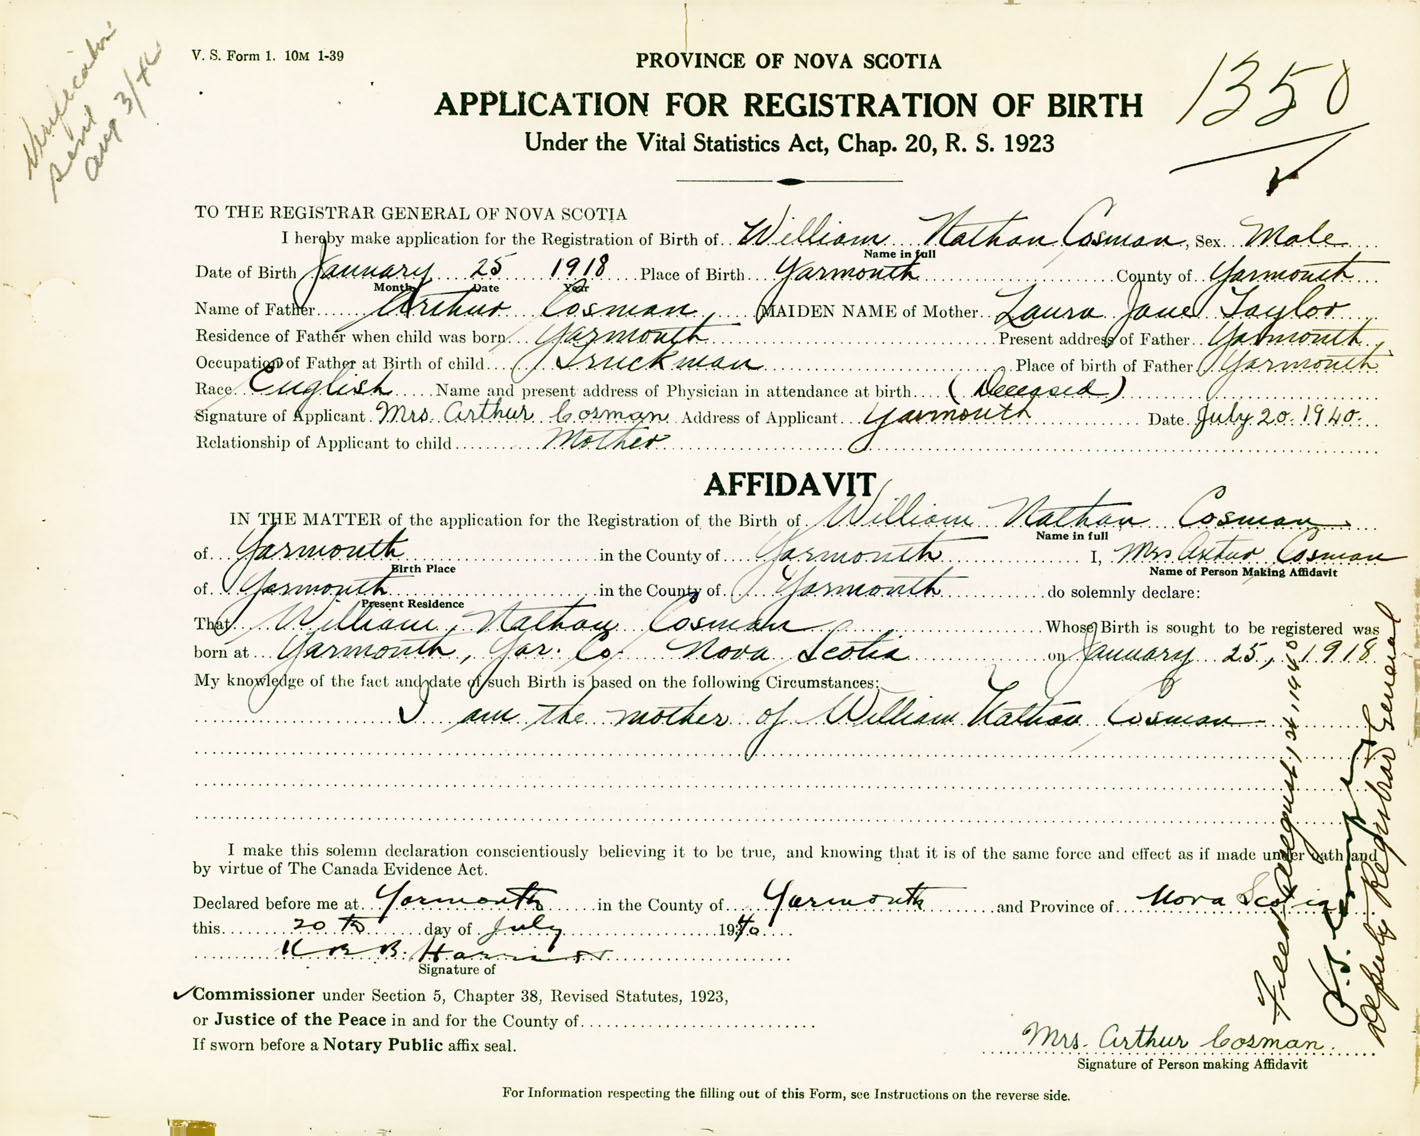 Verification
sent
Aug 3/40
V. S. Form 1. 10M 1-39
PROVINCE OF NOVA SCOTIA
1350
APPLICATION FOR REGISTRATION OF BIRTH
Under the Vital Statistics Act, Chap. 20, R. S. 1923
TO THE REGISTRAR GENERAL OF NOVA SCOTIA
I hereby make application for the Registration of Birth of William Nathan Cosman, Sex Male
Name in full
Date of Birth January 25 1918 Place of Birth Yarmouth County of Yarmouth
Month Date Year
Name of Father Arthur Cosman, MAIDEN NAME of Mother Laura Jane Taylor
Residence of Father when child was born Yarmouth Present address of Father Yarmouth
Occupation of Father at Birth of child Truckman Place of birth of Father Yarmouth
Race English Name and present address of Physician in attendance at birth (Deceased)
Signature of Applicant Mrs. Arthur Cosman Address of Applicant Yarmouth Date July 20 1940
Relationship of Applicant to child Mother
AFFIDAVIT
IN THE MATTER of the application for the Registration of the Birth of William Nathan Cosman
Name in full
of Yarmouth in the County of Yarmouth I, Mrs Arthur Cosman
Birth Place Name of Person Making Affidavit
of Yarmouth in the County of Yarmouth do solemnly declare:
Present Residence
That William Nathan Cosman Whose Birth is sought to be registered was
born at Yarmouth, Yar. Co. Nova Scotia on January 25, 1918
My knowledge of the fact and date of such Birth is based on the following Circumstances:
I am the mother of William Nathan Cosman
I make this solemn declaration conscientiously believing it to be true, and knowing that it is of the same force and effect as if made under oath and
by virtue of The Canada Evidence Act.
Declared before me at Yarmouth in the County of Yarmouth and Province of Nova Scotia
this 20th day of July 1940
Signature of
Commissioner under Section 5, Chapter 38, Revised Statutes, 1923,
or Justice of the Peace in and for the County of
If sworn before a Notary Public affix seal.
Mrs. Arthur Cosman
Signature of Person making Affidavit
For Information respecting the filling out of this Form, see Instructions on the reverse side.
Filed August 1st, 1940
Deputy Registrar General